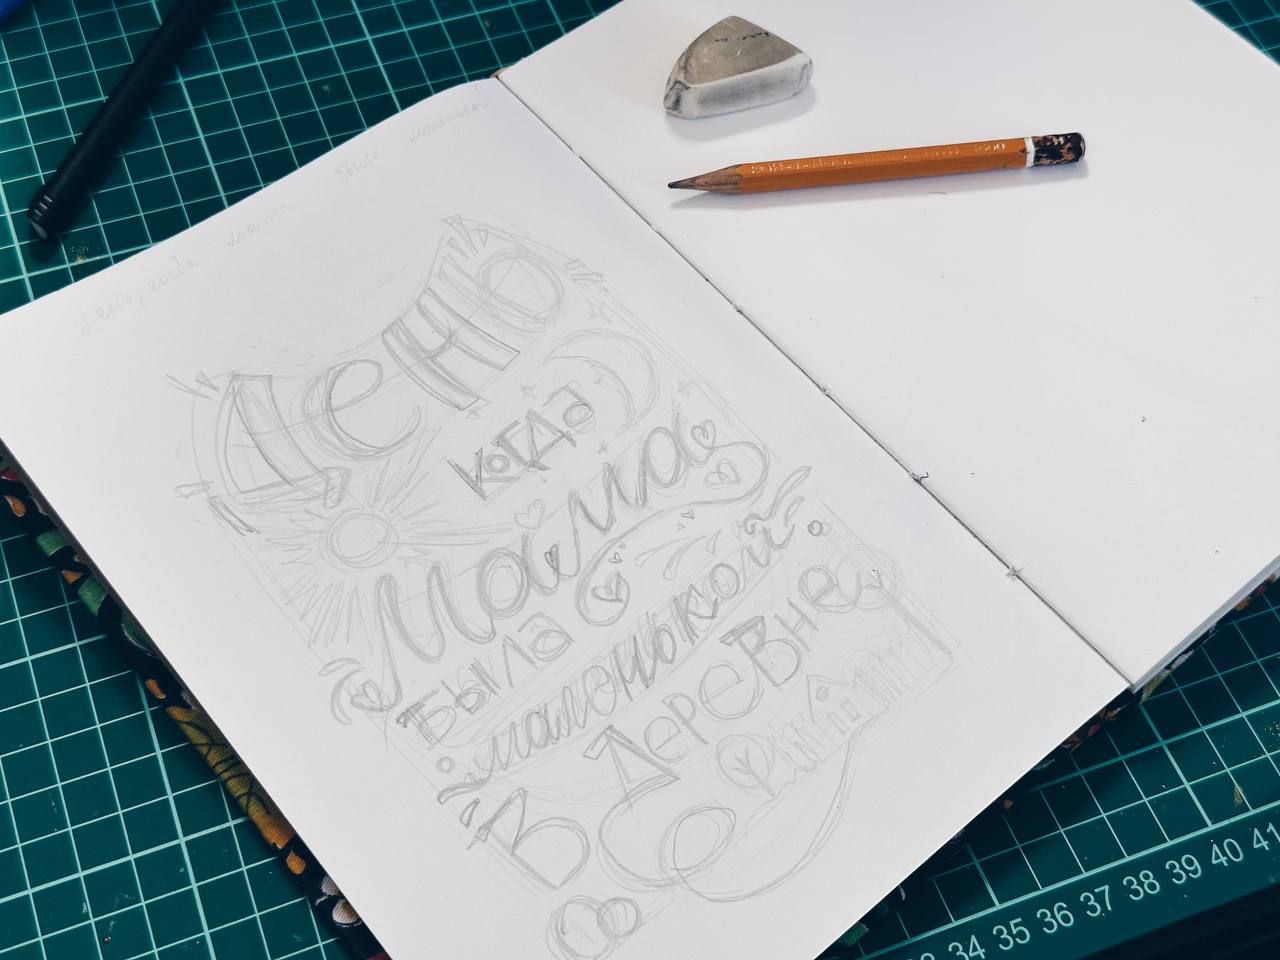 День, когда мама была маленькой
День
когда
мама
была
маленькой
в деревне
KOH-I-NOOR
1500
34 35 36 37 38 39 40 41